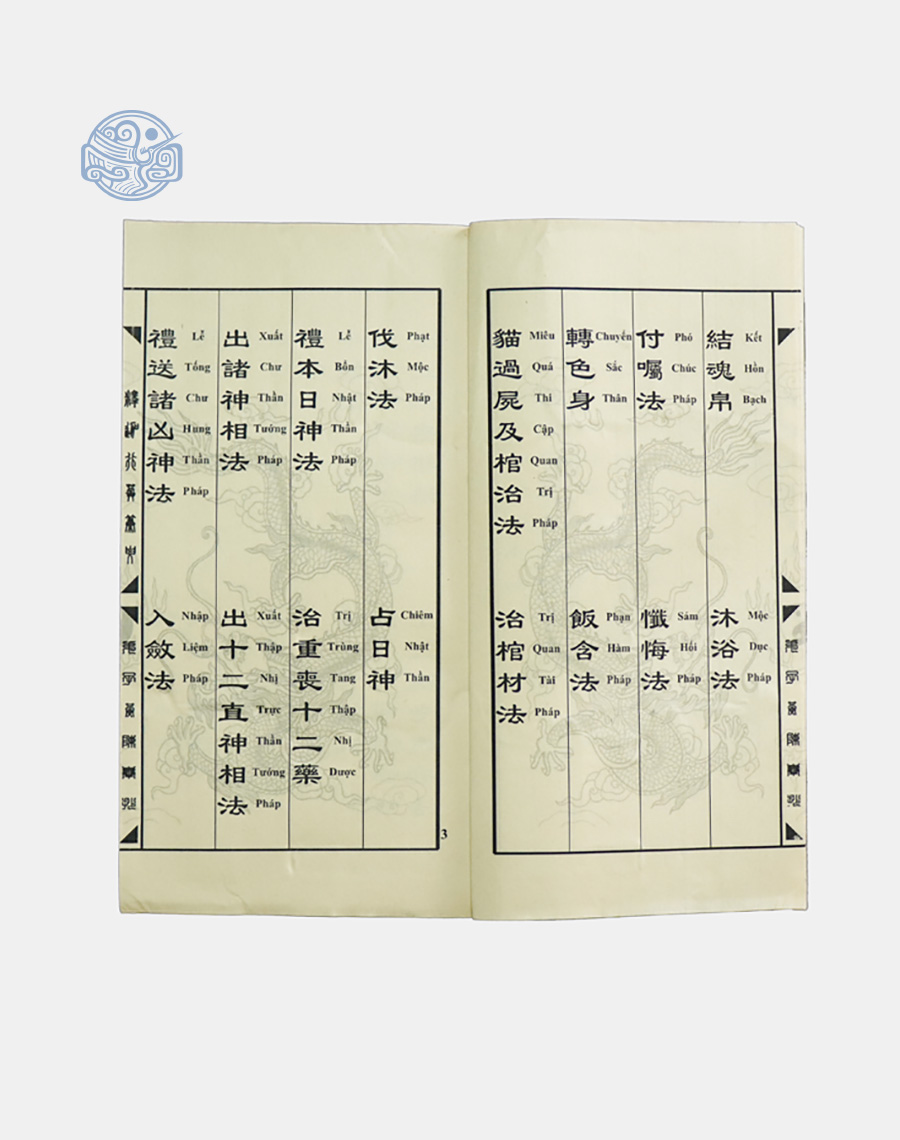 結魂帛
Kết Hồn Bạch
沐浴法
Mộc Dục Pháp
付囑法
Phó Chúc Pháp
懺悔法
Sám Hối Pháp
轉色身
Chuyển Sắc Thân
飯含法
Phạn Hàm Pháp
貓過屍及棺治法
Miêu Quá Thi Cập Quan Trị Pháp
治棺材法
Trị Quan Tài Pháp
伐沐法
Phạt Mộc Pháp
占日神
Chiêm Nhật Thần
禮本日神法
Lễ Bổn Nhật Thần Pháp
治重喪十二藥
Trị Trùng Tang Thập Nhị Dược
出諸神相法
Xuất Chư Thần Tướng Pháp
出十二直神相法
Xuất Thập Nhị Trực Thần Tướng Pháp
禮送諸凶神法
Lễ Tống Chư Hung Thần Pháp
入斂法
Nhập Liệm Pháp
3